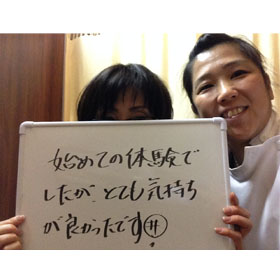 始めての体験で
したが、とても気持ち
が良かったです